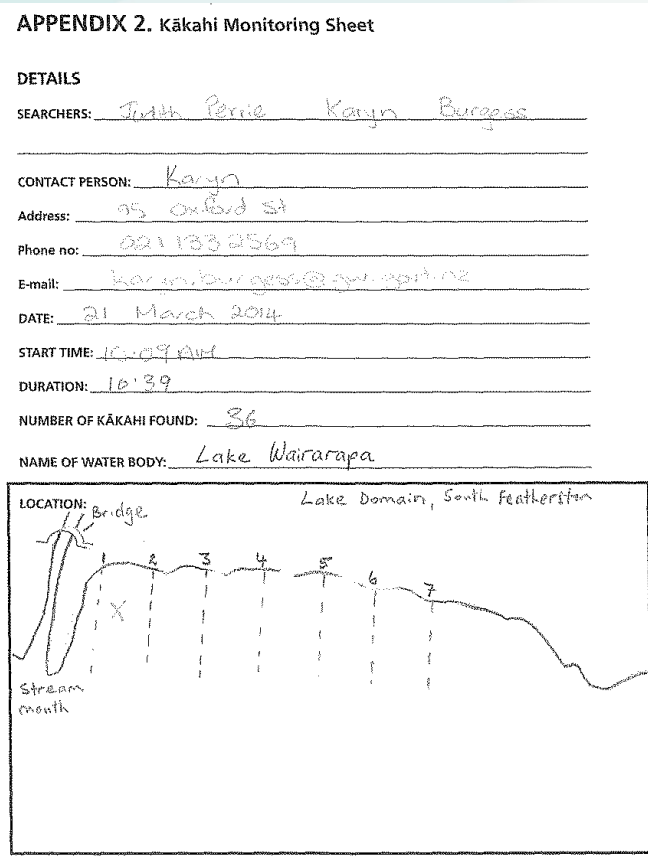 APPENDIX 2. Kākahi Monitoring Sheet
DETAILS
SEARCHERS: Judith Perrie Karyn Burgess
CONTACT PERSON: Karyn
Address: 95 Oxford St
Phone no: 021 133 2569
E-mail: karyn.burgess@gw.govt.nz
DATE: 21 March 2014
START TIME: 10:09 AM
DURATION: 10:39
NUMBER OF KĀKAHI FOUND: 36
NAME OF WATER BODY: Lake Wairarapa
LOCATION: Lake Domain, South Featherston
Bridge
1 2 3 4 5 6 7
X
Stream
mouth